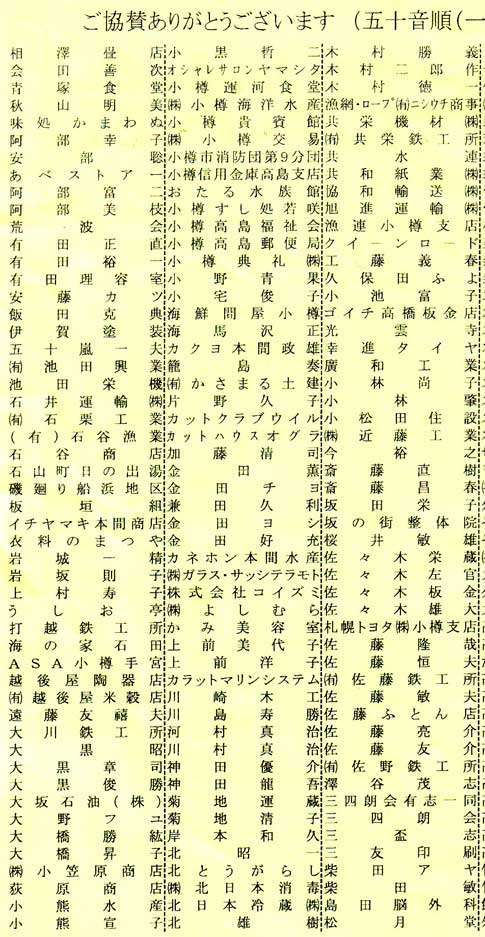 ご協賛ありがとうございます (五十音順(一
相澤畳店
会田善次
青塚食堂
秋山明美
味処かまわぬ
阿部幸子
安部聡
あべストアー
阿部富二
阿部美枝
荒波会
有田正直
有田裕一
有田理容室
安藤カツ
飯田克典
伊賀塗装
五十嵐一夫
㈲池田興業
池田栄機
石井運輸㈱
㈲石栗工業
(有)石谷漁業
石谷商店
石山町日の出湯
磯廻り船浜地区
板垣組
イチヤマキ本間商店
衣料のまつや
岩城一精
岩坂則子
上村寿子
うしお亭
打越鉄工所
海の家石田
ASA小樽手宮
越後屋陶器店
㈲越後屋米穀店
遠藤友禧夫
大川鉄工所
大黒昭
大黒章司
大黒俊勝
大坂石油(株)
大野フユ
大橋勝紘
大橋昇子
㈱小笠原商店
荻原商店
小熊水産
小熊宣子
小黒哲二
オシャレサロンヤマシタ
小樽運河食堂
㈱小樽海洋水産
小樽貴賓館
㈱小樽交易
小樽市消防団第9分団
小樽信用金庫高島支店
おたる水族館
小樽すし処若咲
小樽高島福祉会
小樽高島郵便局
小樽典礼㈱
小野青果
小宅俊子
海鮮問屋小樽
海馬沢正
カクヨ本間政雄
籠島奏
㈲かさまる土建
片野久子
カットクラブウイル
カットハウスオグラ
加藤清司
金田薫
金田チヨ
兼田久利
金田ヨシ
金田好充
カネホン本間水産
㈱ガラス・サッシテラモト
株式会社コイズミ
㈱よしむら
かみ美容室
上前美代子
上前洋子
カラットマリンシステム
川崎木工
川島寿勝
河村真治
川村真治
神田優介
神田龍吾
菊地運蔵
菊地清子
岸本和久
北昭一
北とうがらし
㈱北日本消毒
北日本冷蔵㈱
北雄樹
木村勝義
木村二郎作
木村徳一
漁網・ロープ㈲ニシウチ商事
共栄機材㈱
㈲共栄鉄工所
共水連
共和紙業㈱
協和輸送㈱
旭進運輸㈱
漁連小樽支店
クイーンロード
工藤義春
久保田ふよ
小池富子
ゴイチ高橋板金店
光雲寺
幸進タイヤ
廣和工業
小林尚子
小林肇
小松田住設
㈱近藤工業
今裕之
斎藤直樹
斎藤昌春
坂田栄子
坂の街整体院
桜井敏雄
佐々木栄蔵
佐々木左官
佐々木板金
佐々木雄大
札幌トヨタ㈱小樽支店
佐藤隆哉
佐藤恒夫
㈲佐藤鉄工所
佐藤敏夫
佐藤ふとん店
佐藤亮介
佐藤友介
㈲佐野鉄工所
澤谷茂志
三四朗会有志一同
三四朗会
三盃志
三友印刷
柴田アヤ
柴田敏
島田脳外科
松月堂